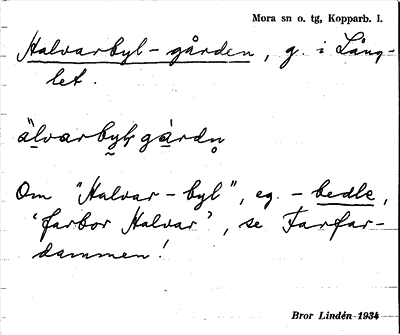 Mora sn o. tg, Kopparb. l.
Halvarbyl-gården, g. i Lång-
let.
älvarbylsgàrdn̥
Om "Halvar-byl", eg. -bedle,
'farbor Halvar', se Farfar-
dammen!
Bror Lindén 1934